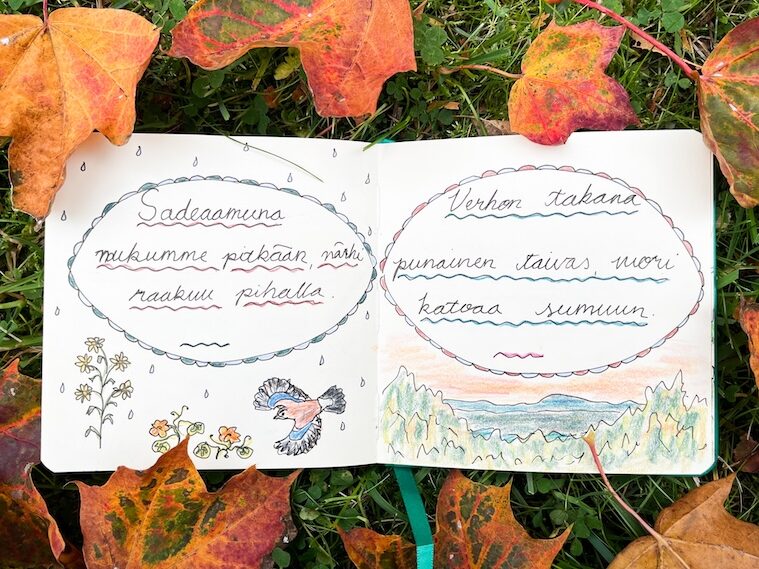 Sadeaamuna
nukumme pitkään, närhi
raakuu pihalla.
Verhon takana
punainen taivas, vuori
katoaa sumuun.